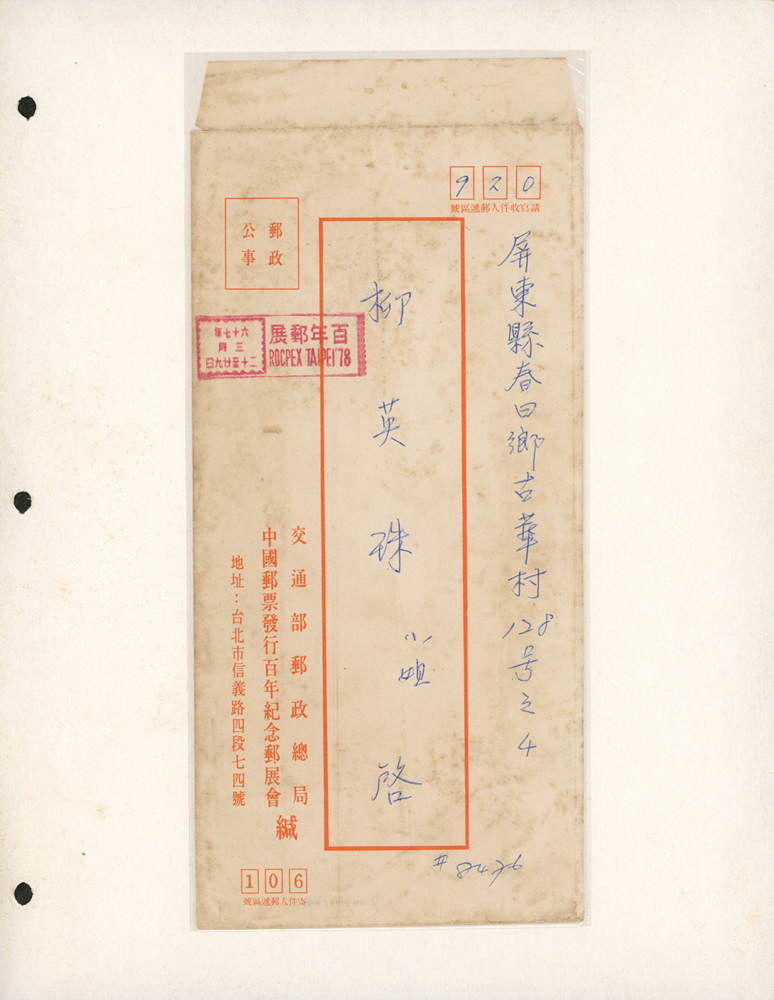 920
號區遞郵人件收寫請
屏東縣春日鄉古華村128号之4
柳英珠小姐啓
郵政
公事
展郵年百
ROCPEX TAIPEI'78
年七十六
月三
日九廿至十二
交通部郵政總局
中國郵票發行百年紀念郵展會緘
地址：台北市信義路四段七四號
106
號區遞郵人件寄